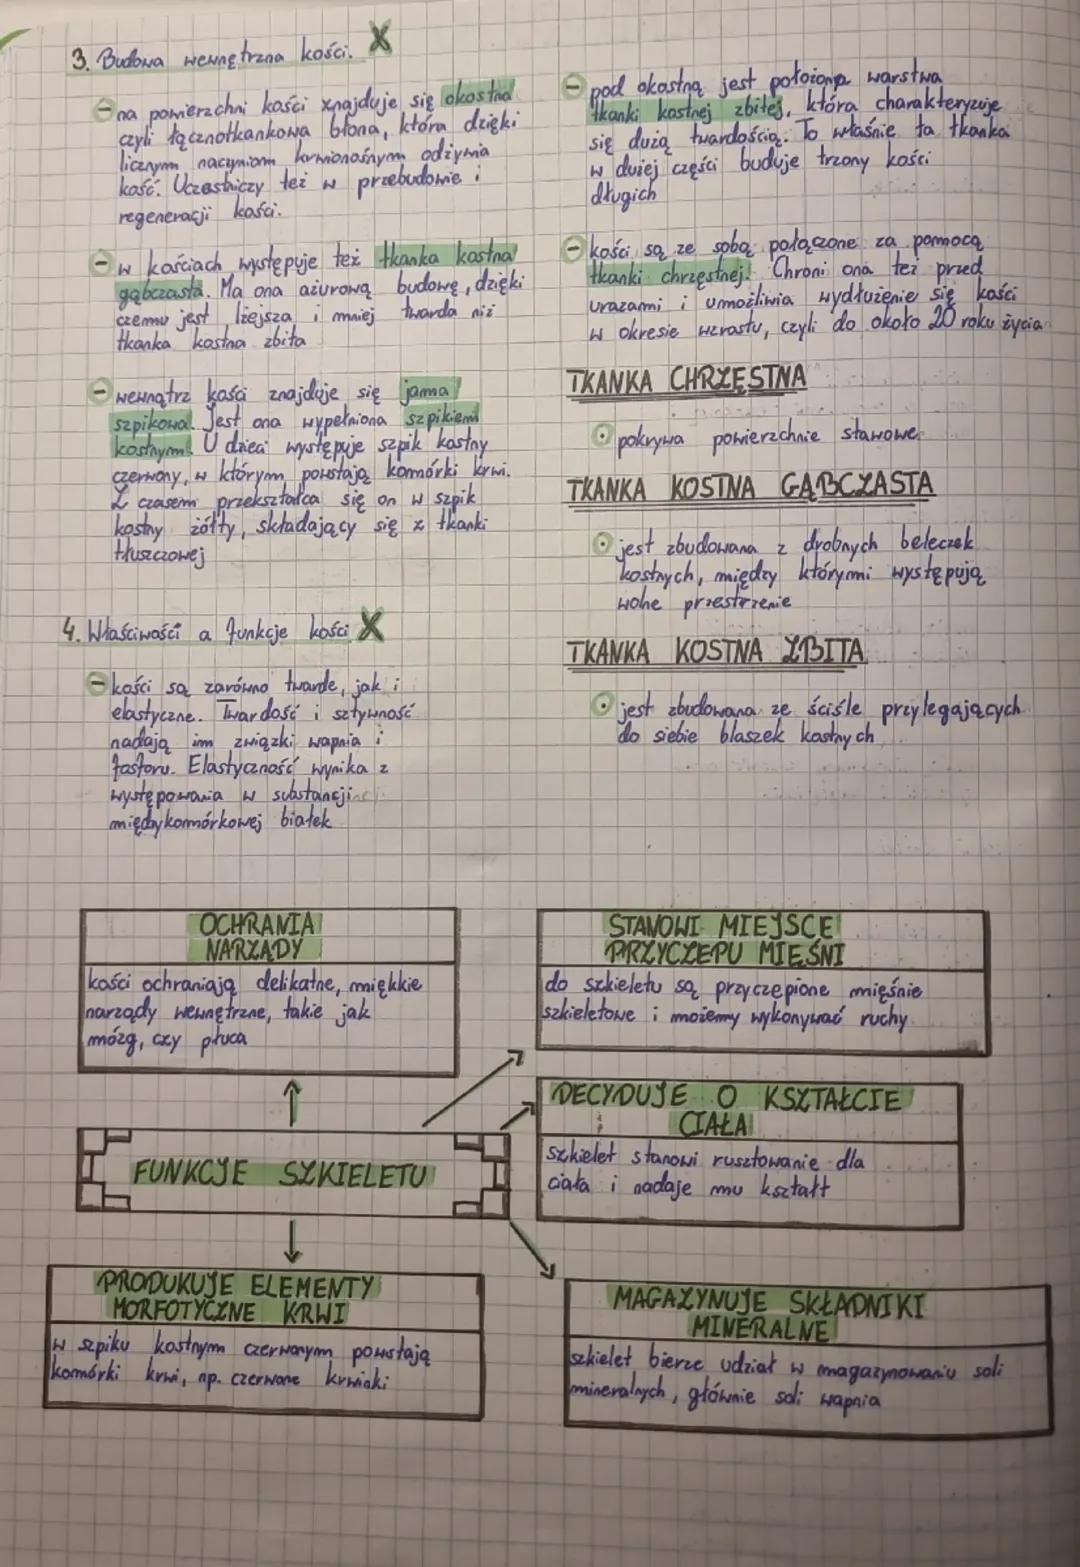 3. Budowa wewnętrzna kości. X
- na powierzchni kości znajduje się okostna
czyli łącznotkankowa błona, która dzięki
licznym naczyniom krwionośnym odżywia
kość. Uczestniczy też w przebudowie i
regeneracji kości.
- w kościach występuje też tkanka kostna
gąbczasta. Ma ona ażurową budowę, dzięki
czemu jest lżejsza i mniej twarda niż
tkanka kostna zbita
- wewnątrz kości znajduje się jama
szpikowa. Jest ona wypełniona szpikiem
kostnym. U dzieci występuje szpik kostny
czerwony, w którym powstają komórki krwi.
Z czasem przekształca się on w szpik
kostny żółty, składający się z tkanki
tłuszczowej
4. Właściwości a funkcje kości X
- kości są zarówno twarde, jak i
elastyczne. Twardość i sztywność
nadają im związki wapnia i
fosforu. Elastyczność wynika z
występowania w substancji
międzykomórkowej białek
- pod okostną jest położona warstwa
tkanki kostnej zbitej, która charakteryzuje
się dużą twardością. To właśnie ta tkanka
w dużej części buduje trzony kości
długich
- kości są ze sobą połączone za pomocą
tkanki chrzęstnej. Chroni ona też przed
urazami i umożliwia wydłużenie się kości
w okresie wzrostu, czyli do około 20 roku życia
TKANKA CHRZĘSTNA
• pokrywa powierzchnie stawowe
TKANKA KOSTNA GĄBCZASTA
• jest zbudowana z drobnych beleczek
kostnych, między którymi występują
wolne przestrzenie
TKANKA KOSTNA ZBITA
• jest zbudowana ze ściśle przylegających
do siebie blaszek kostnych
OCHRANIA
NARZĄDY
kości ochraniają delikatne, miękkie
narządy wewnętrzne, takie jak
mózg, czy płuca
STANOWI MIEJSCE
PRZYCZEPU MIĘŚNI
do szkieletu są przyczepione mięśnie
szkieletowe i możemy wykonywać ruchy
DECYDUJE O KSZTAŁCIE
CIAŁA
szkielet stanowi rusztowanie dla
ciała i nadaje mu kształt
FUNKCJE SZKIELETU
PRODUKUJE ELEMENTY
MORFOTYCZNE KRWI
w szpiku kostnym czerwonym powstają
komórki krwi, np. czerwone krwinki
MAGAZYNUJE SKŁADNIKI
MINERALNE
szkielet bierze udział w magazynowaniu soli
mineralnych, głównie soli wapnia